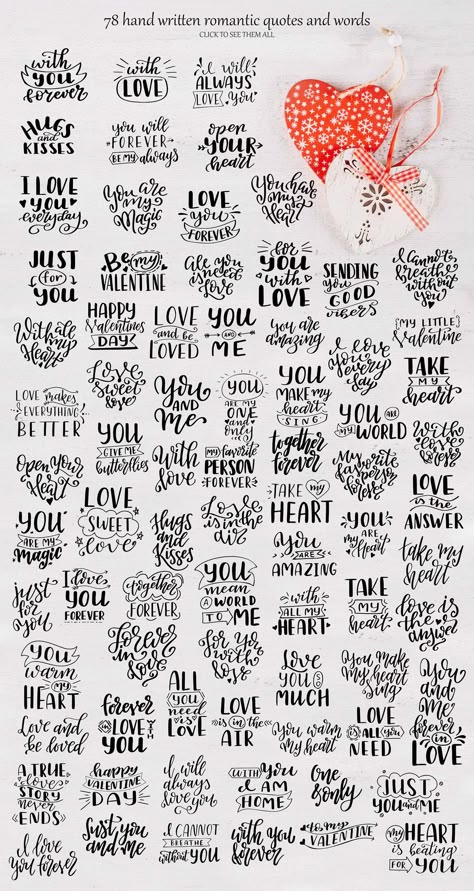 78 hand written romantic quotes and words
CLICK TO SEE THEM ALL
with
YOU
forever
with
LOVE
I will
ALWAYS
LOVE You
HUGS
and
KISSES
you will
FOREVER
BE MY always
open
YOUR
heart
I LOVE
YOU
everyday
You are
my
Magic
LOVE
you
FOREVER
You have
my
Heart
JUST
for
YOU
Be my
VALENTINE
All you
need is
love
for
YOU
with
LOVE
SENDING
you
GOOD
vibes
I cannot
breathe
without
you
With all
my
Heart
HAPPY
Valentines
DAY
LOVE
and be
LOVED
YOU
AND
ME
You are
amazing
I love
You
every
day
{MY LITTLE}
Valentine
LOVE makes
EVERYTHING
BETTER
Love
Sweet
love
YOU
AND
Me
YOU
ARE MY
ONE
and
only
YOU
MAKE MY
heart
SING
TAKE
MY
heart
YOU
GIVE ME
butterflies
YOU ARE
MY WORLD
With
love
MY favorite
PERSON
FOREVER
together
forever
My
favorite
person
forever
With
love
Open Your
Heart
LOVE
SWEET
love
TAKE my
HEART
LOVE
is the
ANSWER
YOU
ARE MY
magic
Hugs
and
Kisses
Love
is in the
air
You
ARE
AMAZING
YOU
are
my Heart
take my
heart
just
for
you
I love
YOU
FOREVER
together
FOREVER
YOU
mean
A WORLD
TO ME
with
ALL MY
HEART
TAKE
MY
heart
love is
the
answer
YOU
warm
MY
HEART
Forever
in
love
for You
with
love
Love
YOU SO
MUCH
You make
my heart
Sing
You
and
Me
forever
in
LOVE
Love and
be loved
forever
IN LOVE WITH
YOU
ALL
YOU
need
is
LOVE
LOVE
is in the
AIR
You warm
my heart
LOVE
is ALL you
NEED
A TRUE
love
STORY
never
ENDS
happy
VALENTINE
DAY
I will
always
love you
WITH You
I AM
HOME
One
& only
JUST
YOU and ME
I love
You forever
Just You
and me
I CANNOT
BREATHE
without YOU
with you
forever
to my
VALENTINE
my HEART
is beating
FOR YOU